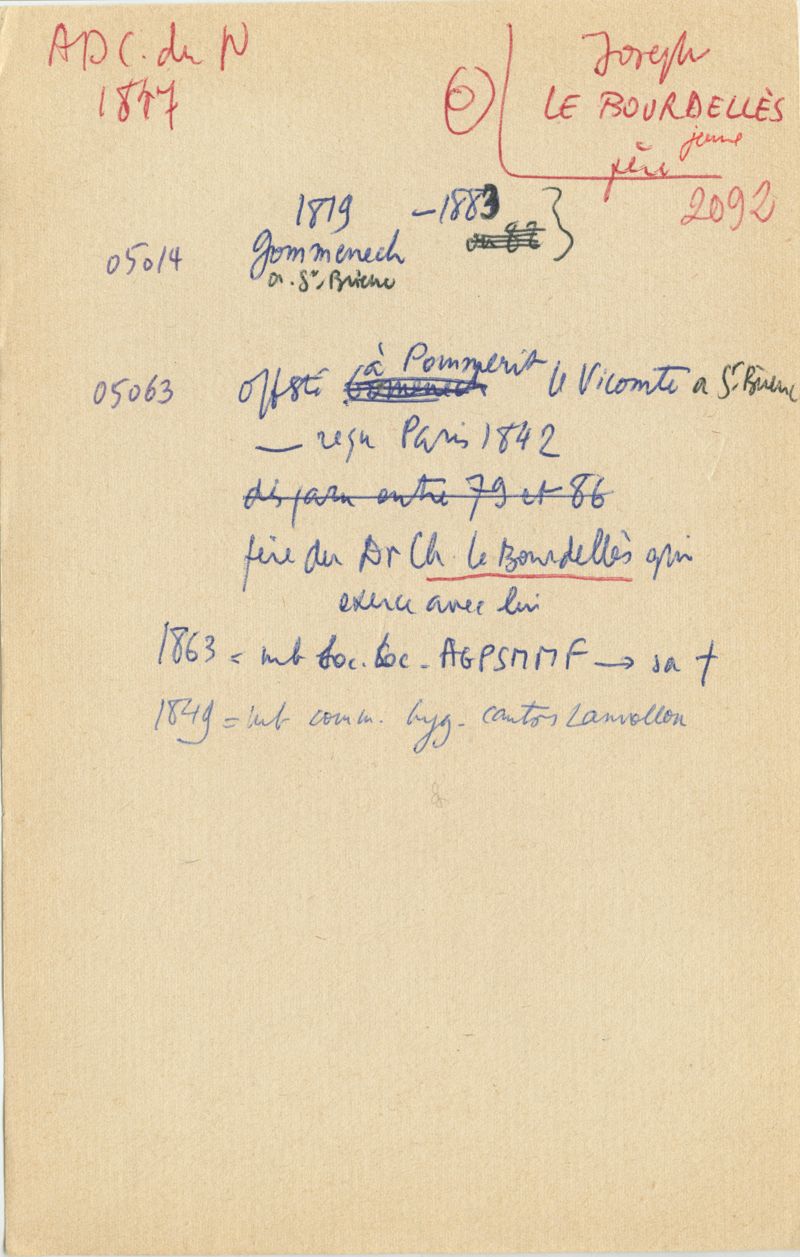 ADC. du N
1847
Joseph
LE BOURDELLÈS
jeune
père
2092
1819 – 1883
ou 82
05014 Gommenech
a St. Brieuc
à Pommerit
05063 offsté Gomenech le Vicomte a St. Brieuc
— reçu Paris 1842
disparu entre 79 et 86
père du Dr Ch. Le Bourdellès qui
exerce avec lui
1863 = mb Soc. Loc. AGPSMMF → sa †
1849 = mb comm. hyg. canton Lanvollon